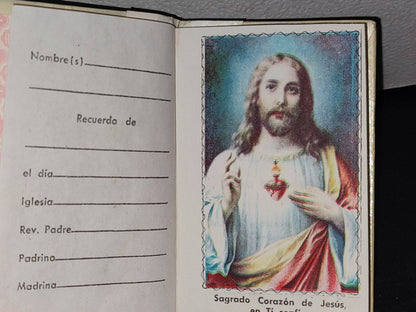 Nombre(s)
Recuerdo de
el día
iglesia
Rev. Padre
Padrino
Madrina
Sagrado Corazón de Jesús,
en Ti